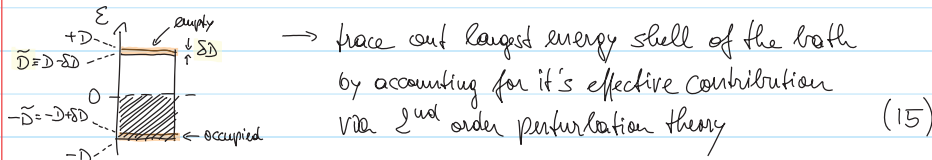 ε
empty
+D
δD
D̃≡D-δD
0
-D̃=-D+δD
occupied
-D
→ trace out largest energy shell of the bath
by accounting for it's effective contribution
via 2nd order perturbation theory (15)